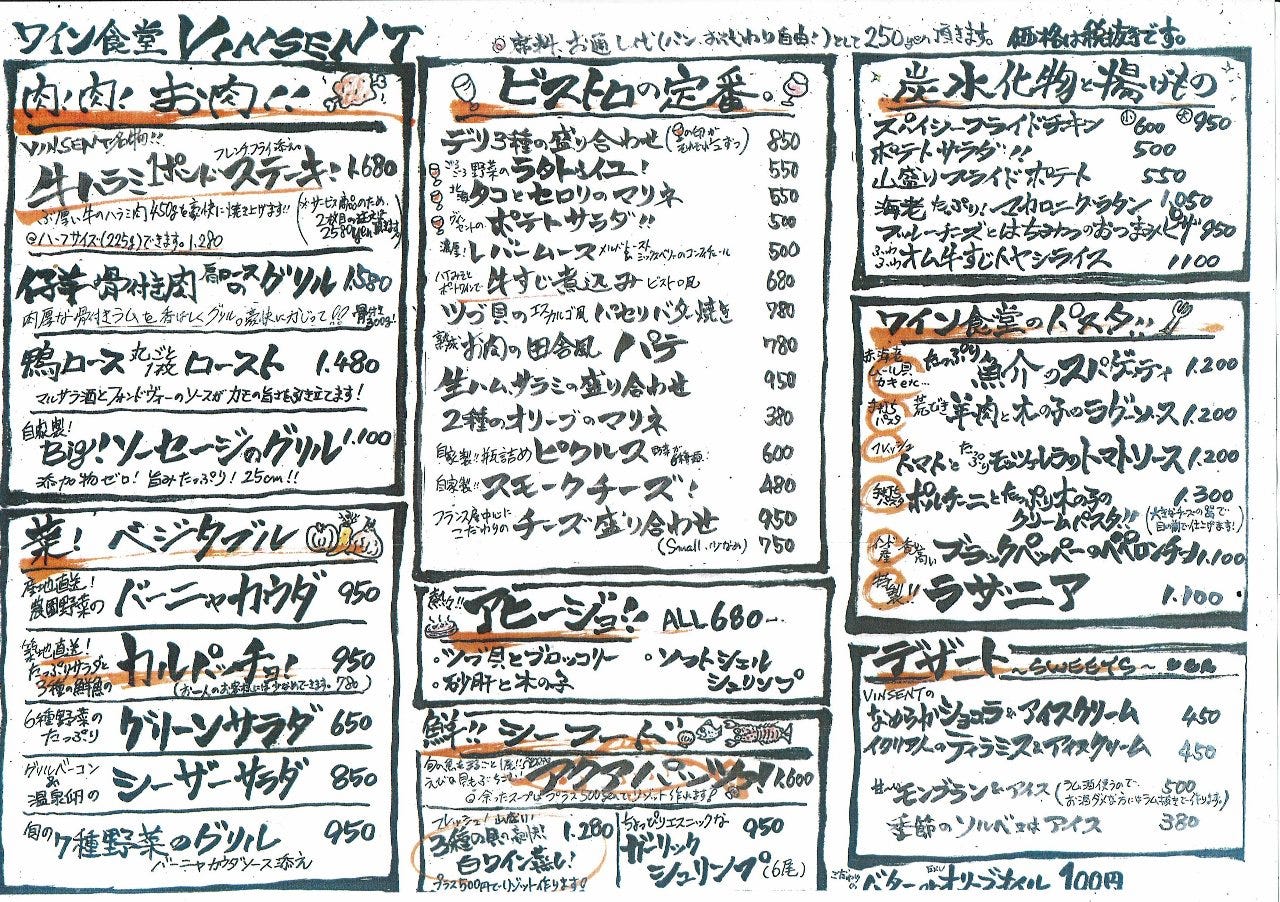 ワイン食堂 VINSENT
席料、お通し代(パン、おかわり自由!)として250yen頂きます。 価格は税抜きです。
肉!肉!お肉!!
VINSENT名物!!
フレンチフライ添え
牛ハラミ1ポンドステーキ! 1.680
ぶ厚い牛のハラミ肉450gを豪快に焼き上げます!!
(※サービス商品のため、2枚目の注文は2580yen頂きます)
@ハーフサイズ(225g)できます。1.280
仔羊の骨付き肉 肩ロースのグリル 1.580
肉厚な骨付きラムを香ばしくグリル。豪快にかじって!! 骨付き300g!
鴨ロース丸ごと1枚ロースト 1.480
マルサラ酒とフォンドヴォーのソースがカモの旨さを引き立てます!
自家製!
Big!ソーセージのグリル 1.100
添加物ゼロ!旨みたっぷり!25cm!!
菜!ベジタブル
産地直送!
農園野菜の バーニャカウダ 950
築地直送!
たっぷりサラダと
3種の鮮魚の カルパッチョ! 950
(お一人のお客様には少なめできます。780)
6種野菜の
たっぷり グリーンサラダ 650
グリルベーコン
&
温泉卵の シーザーサラダ 850
旬の7種野菜のグリル 950
バーニャカウダソース添え
ビストロの定番。
デリ3種の盛り合わせ 850
ごろごろ野菜のラタトゥイユ! 550
北海タコとセロリのマリネ 550
ヴィンセントのポテトサラダ!! 500
濃厚!レバームース メルバトースト&ミックスベリーのコンフィチュール 500
ハチミツとポートワインで牛すじ煮込み ビストロ風 680
ツブ貝のエスカルゴ風パセリバター焼き 780
熟成 お肉の田舎風 パテ 780
生ハム、サラミの盛り合わせ 950
2種のオリーブのマリネ 380
自家製!!瓶詰めピクルス 600
自家製!!スモークチーズ! 480
フランス産中心に
こだわりのチーズ盛り合わせ 950
(Small、少なめ) 750
熱々!!
アヒージョ!! ALL680-
・ツブ貝とブロッコリー
・砂肝と木の子
・ソフトシェルシュリンプ
鮮!!シーフード
旬の魚をまるごと1尾!!
アクアパッツァ! 1.600
@余ったスープはプラス500yenでリゾット作れます!
フレッシュ!山盛り!
3種の貝の豪快!
白ワイン蒸し! 1.280
プラス500円でリゾット作ります!
ちょっぴりエスニックな 950
ガーリック
シュリンプ(6尾)
炭水化物と揚げもの
スパイシーフライドチキン 小600 大950
ポテトサラダ!! 500
山盛りフライドポテト 550
海老たっぷり!マカロニ・グラタン 1.050
ブルーチーズとはちみつのおつまみピザ 950
ふわふわオム牛すじハヤシライス 1100
ワイン食堂のパスタ!!
赤海老
ムール貝
カキetc…
たっぷり魚介のスパゲッティ 1.200
手打ちパスタ 荒びき羊肉と木の子のラグーソース 1.200
フレッシュトマトとたっぷりモッツァレラのトマトソース 1.200
手打ちパスタ ポルチーニとたっぷり木の子の
クリームパスタ!! 1.300
(大きなチーズの器で目の前で仕上げます!)
インド産 香高い ブラックペッパーのペペロンチーノ 1.100
特製!! ラザニア 1.100
デザート ~SWEETS~
VINSENTの
なめらかショコラ&アイスクリーム 450
イタリア人のティラミス&アイスクリーム 450
甘~いモンブラン&アイス 500
(ラム酒使うので、お酒ダメな方にはラム抜きで作ります!)
季節のソルベ又はアイス 380
こだわりの!バター or オリーブオイル 100円